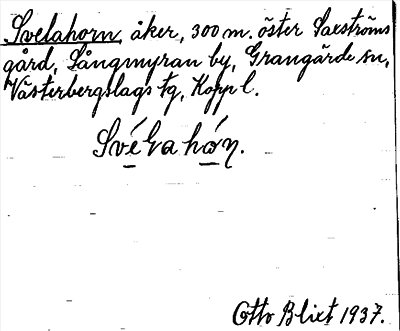 Svelahorn, åker, 300 m. öster Saxströms
gård, Långmyran by, Grangärde sn,
Västerbergslags tg, Kopp l.
Svéላahó̱ꞃ.
Otto Blixt 1937.